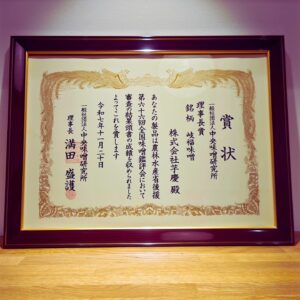 賞状
一般社団法人中央味噌研究所
理事長賞
銘柄 岐福味噌
株式会社芋慶 殿
あなたの出品は農林水産省後援
第六十六回全国味噌鑑評会において
審査の結果頭書の成績を収められました
よってこれを賞します
令和七年十一月二十日
一般社団法人中央味噌研究所
理事長 満田盛護